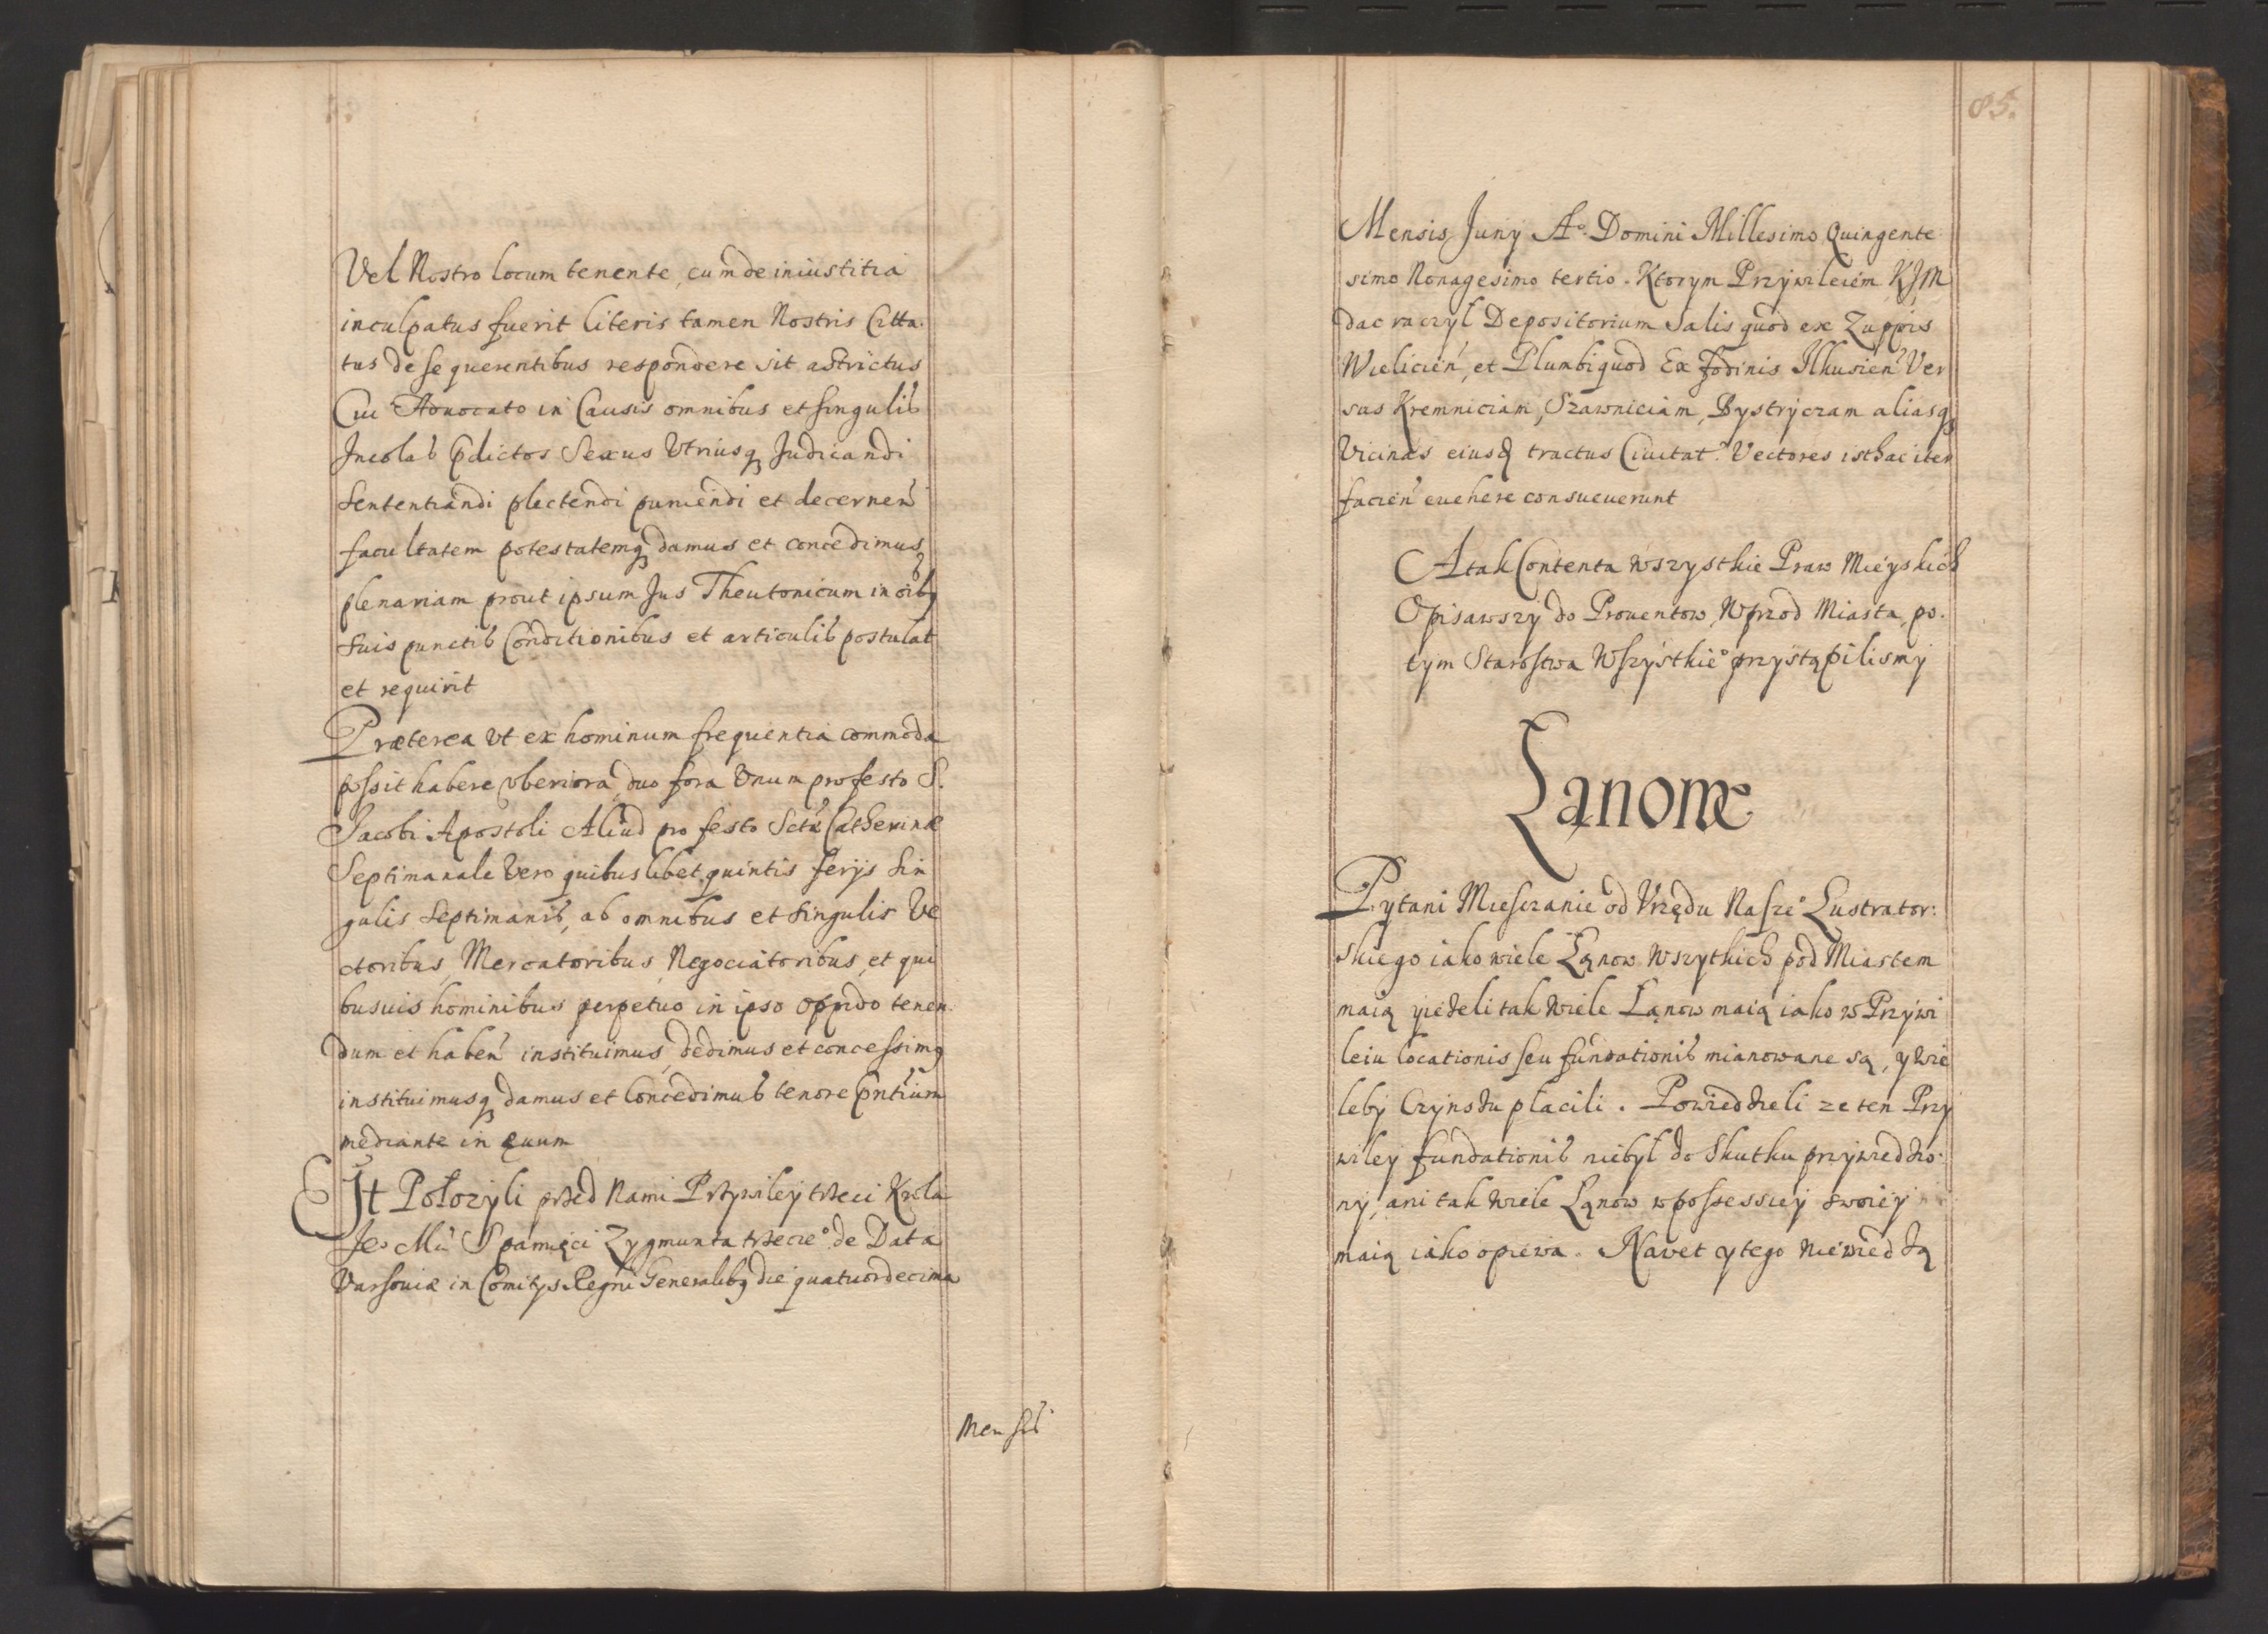 Vel Nostro locum tenente, cum de iniustitia
inculpatus fuerit literis tamen Nostris Citta.
tus de se querentibus respondere sit astrictus
Cui Aduocato in Causis omnibus et singulis
Incolas pdictos Sexus Vtriusq Judicandi
sententiandi plectendi puniendi et decernen
facultatem potestatemq damus et concedimus
plenariam prout ipsum Jus Theutonicum in oibq
suis punctis Conditionibus et articulis postulat
et requirit
Præterea vt ex hominum frequentia commoda
possit habere vberiora, duo fora Vnum pro festo S.
Jacobi Apostoli Aliud pro festo Sctæ Catherinæ
Septimanale Vero quibuslibet quintis ferijs sin
gulis septimanis, ab omnibus et singulis Ve
ctoribus, Mercatoribus, Negociatoribus, et qui
busuis hominibus perpetuo in ipso oppido tenen
dum et haben instituimus, dedimus et concessimq
instituimusq damus et Concedimus tenore pntium
mediante in æuum
It Położyli przed Nami Przywiley trzeci Krola
Je° Mći S pamięci Zygmunta trzecie° de Data
Varsouiæ in Comitys Regni Generalibq die quatuordecima
Mensis
85.
Mensis Juny A° Domini Millesimo Quingente
simo Nonagesimo tertio. Ktorym Przywileiem KJM
dac raczył Depositorium Salis quod ex Zuppis
Wielicień, et Plumbi quod Ex fodinis Ilkusień Ver
sus Kremniciam, Szawniciam, Bystryczam aliasq
Vicinas eiusd tractus Ciuitat. Vectores isthac iter
facień euehere consueuerunt
A tak Contenta wszystkie Praw Mieyskich
Opisawszy do Prouentow, Wprzod Miasta, po.
tym Starostwa Wszystkie° przystąpilismy
Łanowe
Pytani Miesczanie od Vrzędu Nasze° Lustrator:
skiego iako wiele Łanow wszytkich pod Miastem
maią yieżeli tak wiele Łanow maią iako w Przywi
leiu locationis seu fundationis mianowane są, y wie
leby Czynszu płacili. Powiedzieli ze ten Przy
wiley fundationis niebył do skutku przywiedzio:
ny, ani tak wiele Łanow w possessiey swoiey
maią iako opiewa. Nawet y tego niewiedzą